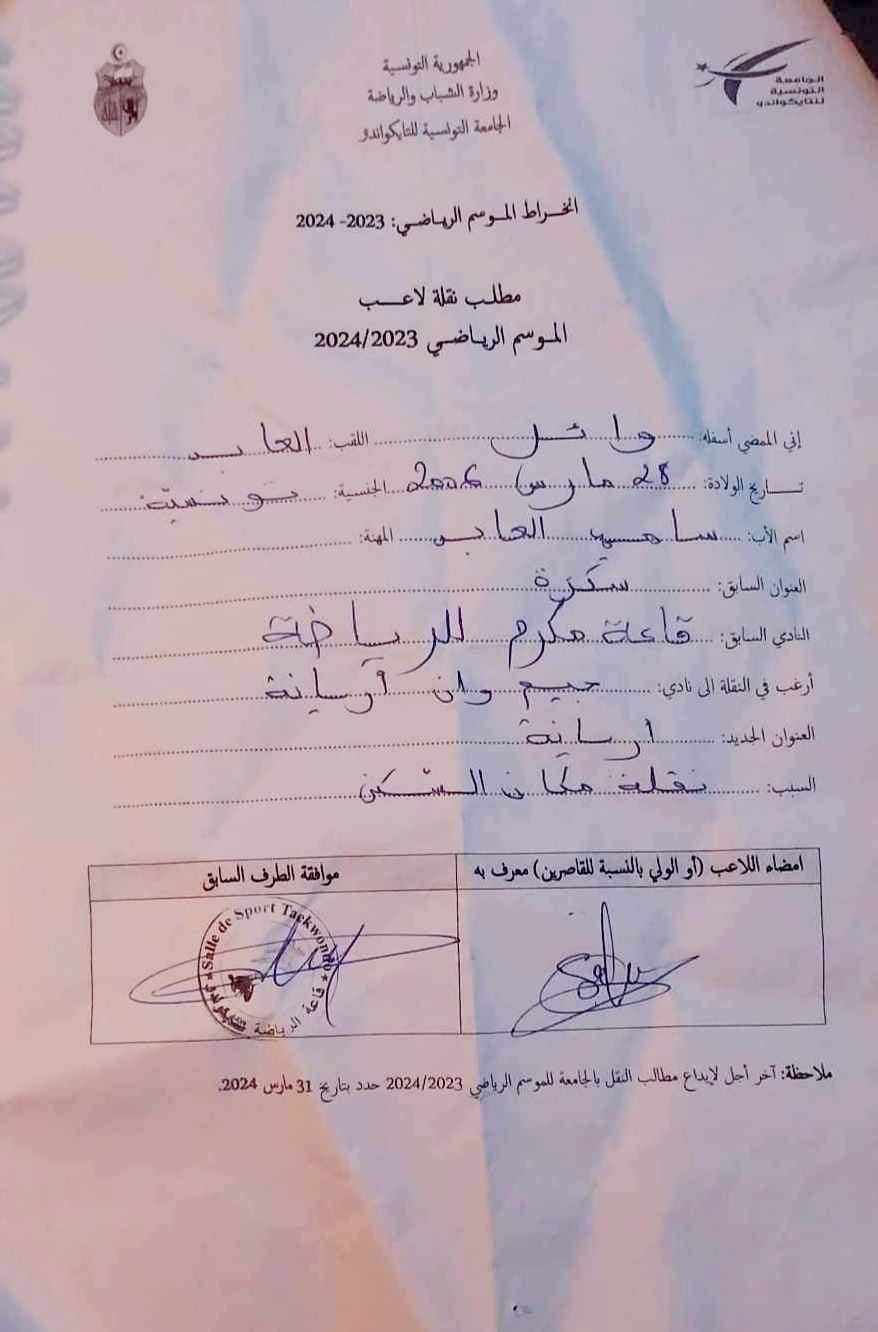 الجمهورية التونسية
وزارة الشباب والرياضة
الجامعة التونسية للتايكواندو
الجامعة
التونسية
للتايكواندو
انخراط الموسم الرياضي: 2023- 2024
مطلب نقلة لاعب
الموسم الرياضي 2024/2023
إني الممضي أسفله: وائل اللقب: العابد
تاريخ الولادة: 28 مارس 2006 الجنسية: تونسية
اسم الأب: سامي العابد المهنة:
العنوان السابق: سكرة
النادي السابق: قاعة مكرم للرياضة
أرغب في النقلة الى نادي: جيم وان أريانة
العنوان الجديد: اريانة
السبب: نقلة مكان السكن
امضاء اللاعب (أو الولي بالنسبة للقاصرين) معرف به
موافقة الطرف السابق
Salle de Sport Taekwondo
قاعة الرياضة
ملاحظة: آخر أجل لإيداع مطالب النقل بالجامعة للموسم الرياضي 2024/2023 حدد بتاريخ 31 مارس 2024.